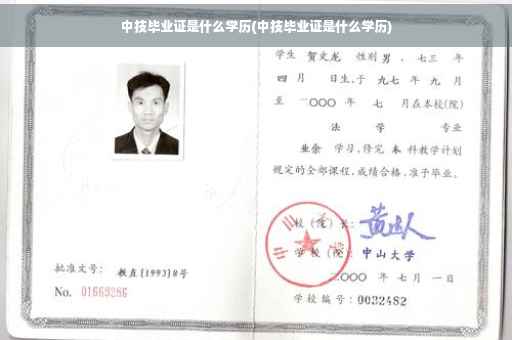 中技毕业证是什么学历(中技毕业证是什么学历)
学生 贺文龙 性别 男 、七三 年
四 月 日生,于 九七 年 九 月
至 二〇〇〇 年 七 月在本校(院)
法 学 专业
业余 学习,修完 本 科教学计划
规定的全部课程,成绩合格,准予毕业。
校(院)长:
学校(院): 中山大学
二〇〇〇 年 七 月 一 日
学校编号: 0032482
批准文号: 教直[1993]8号
No. 01669286